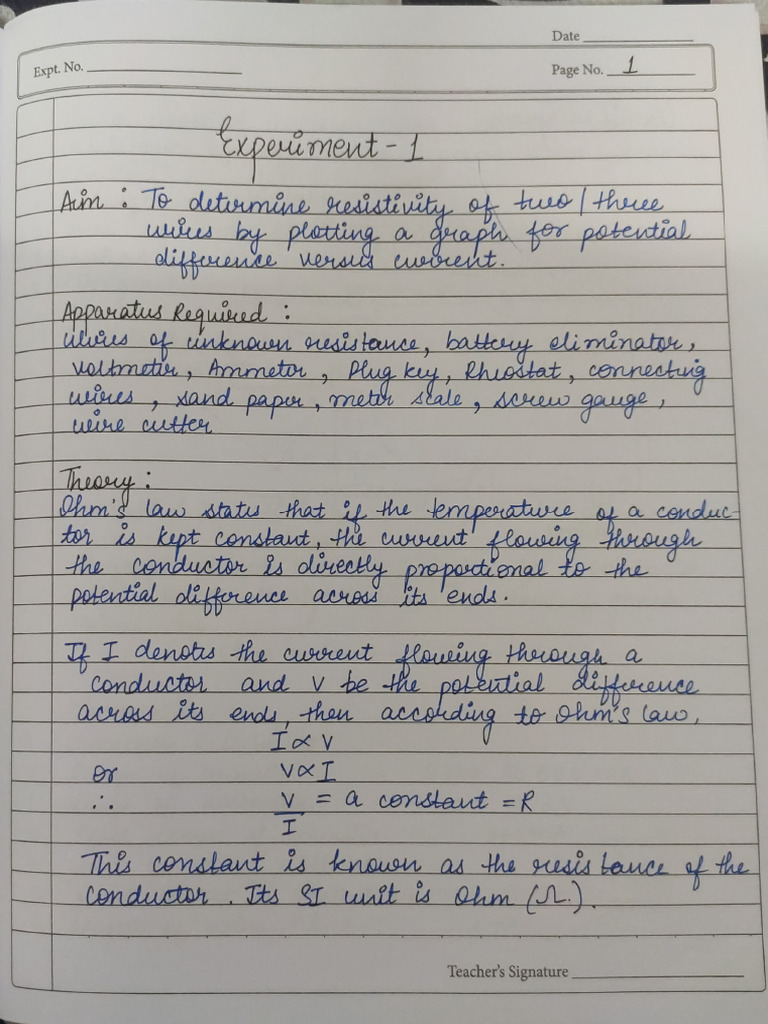 Date
Expt. No.
Page No. 1
Experiment - 1
Aim : To determine resistivity of two / three
wires by plotting a graph for potential
difference versus current.
Apparatus Required :
Wires of unknown resistance, battery eliminator,
Voltmeter, Ammeter, Plug key, Rheostat, connecting
wires, sand paper, meter scale, screw gauge,
wire cutter
Theory :
Ohm's law states that if the temperature of a conduc-
tor is kept constant, the current flowing through
the conductor is directly proportional to the
potential difference across its ends.
If I denotes the current flowing through a
conductor and V be the potential difference
across its ends, then according to Ohm's law,
I ∝ V
or V ∝ I
∴ V/I = a constant = R
This constant is known as the resistance of the
conductor. Its SI unit is Ohm (Ω).
Teacher's Signature